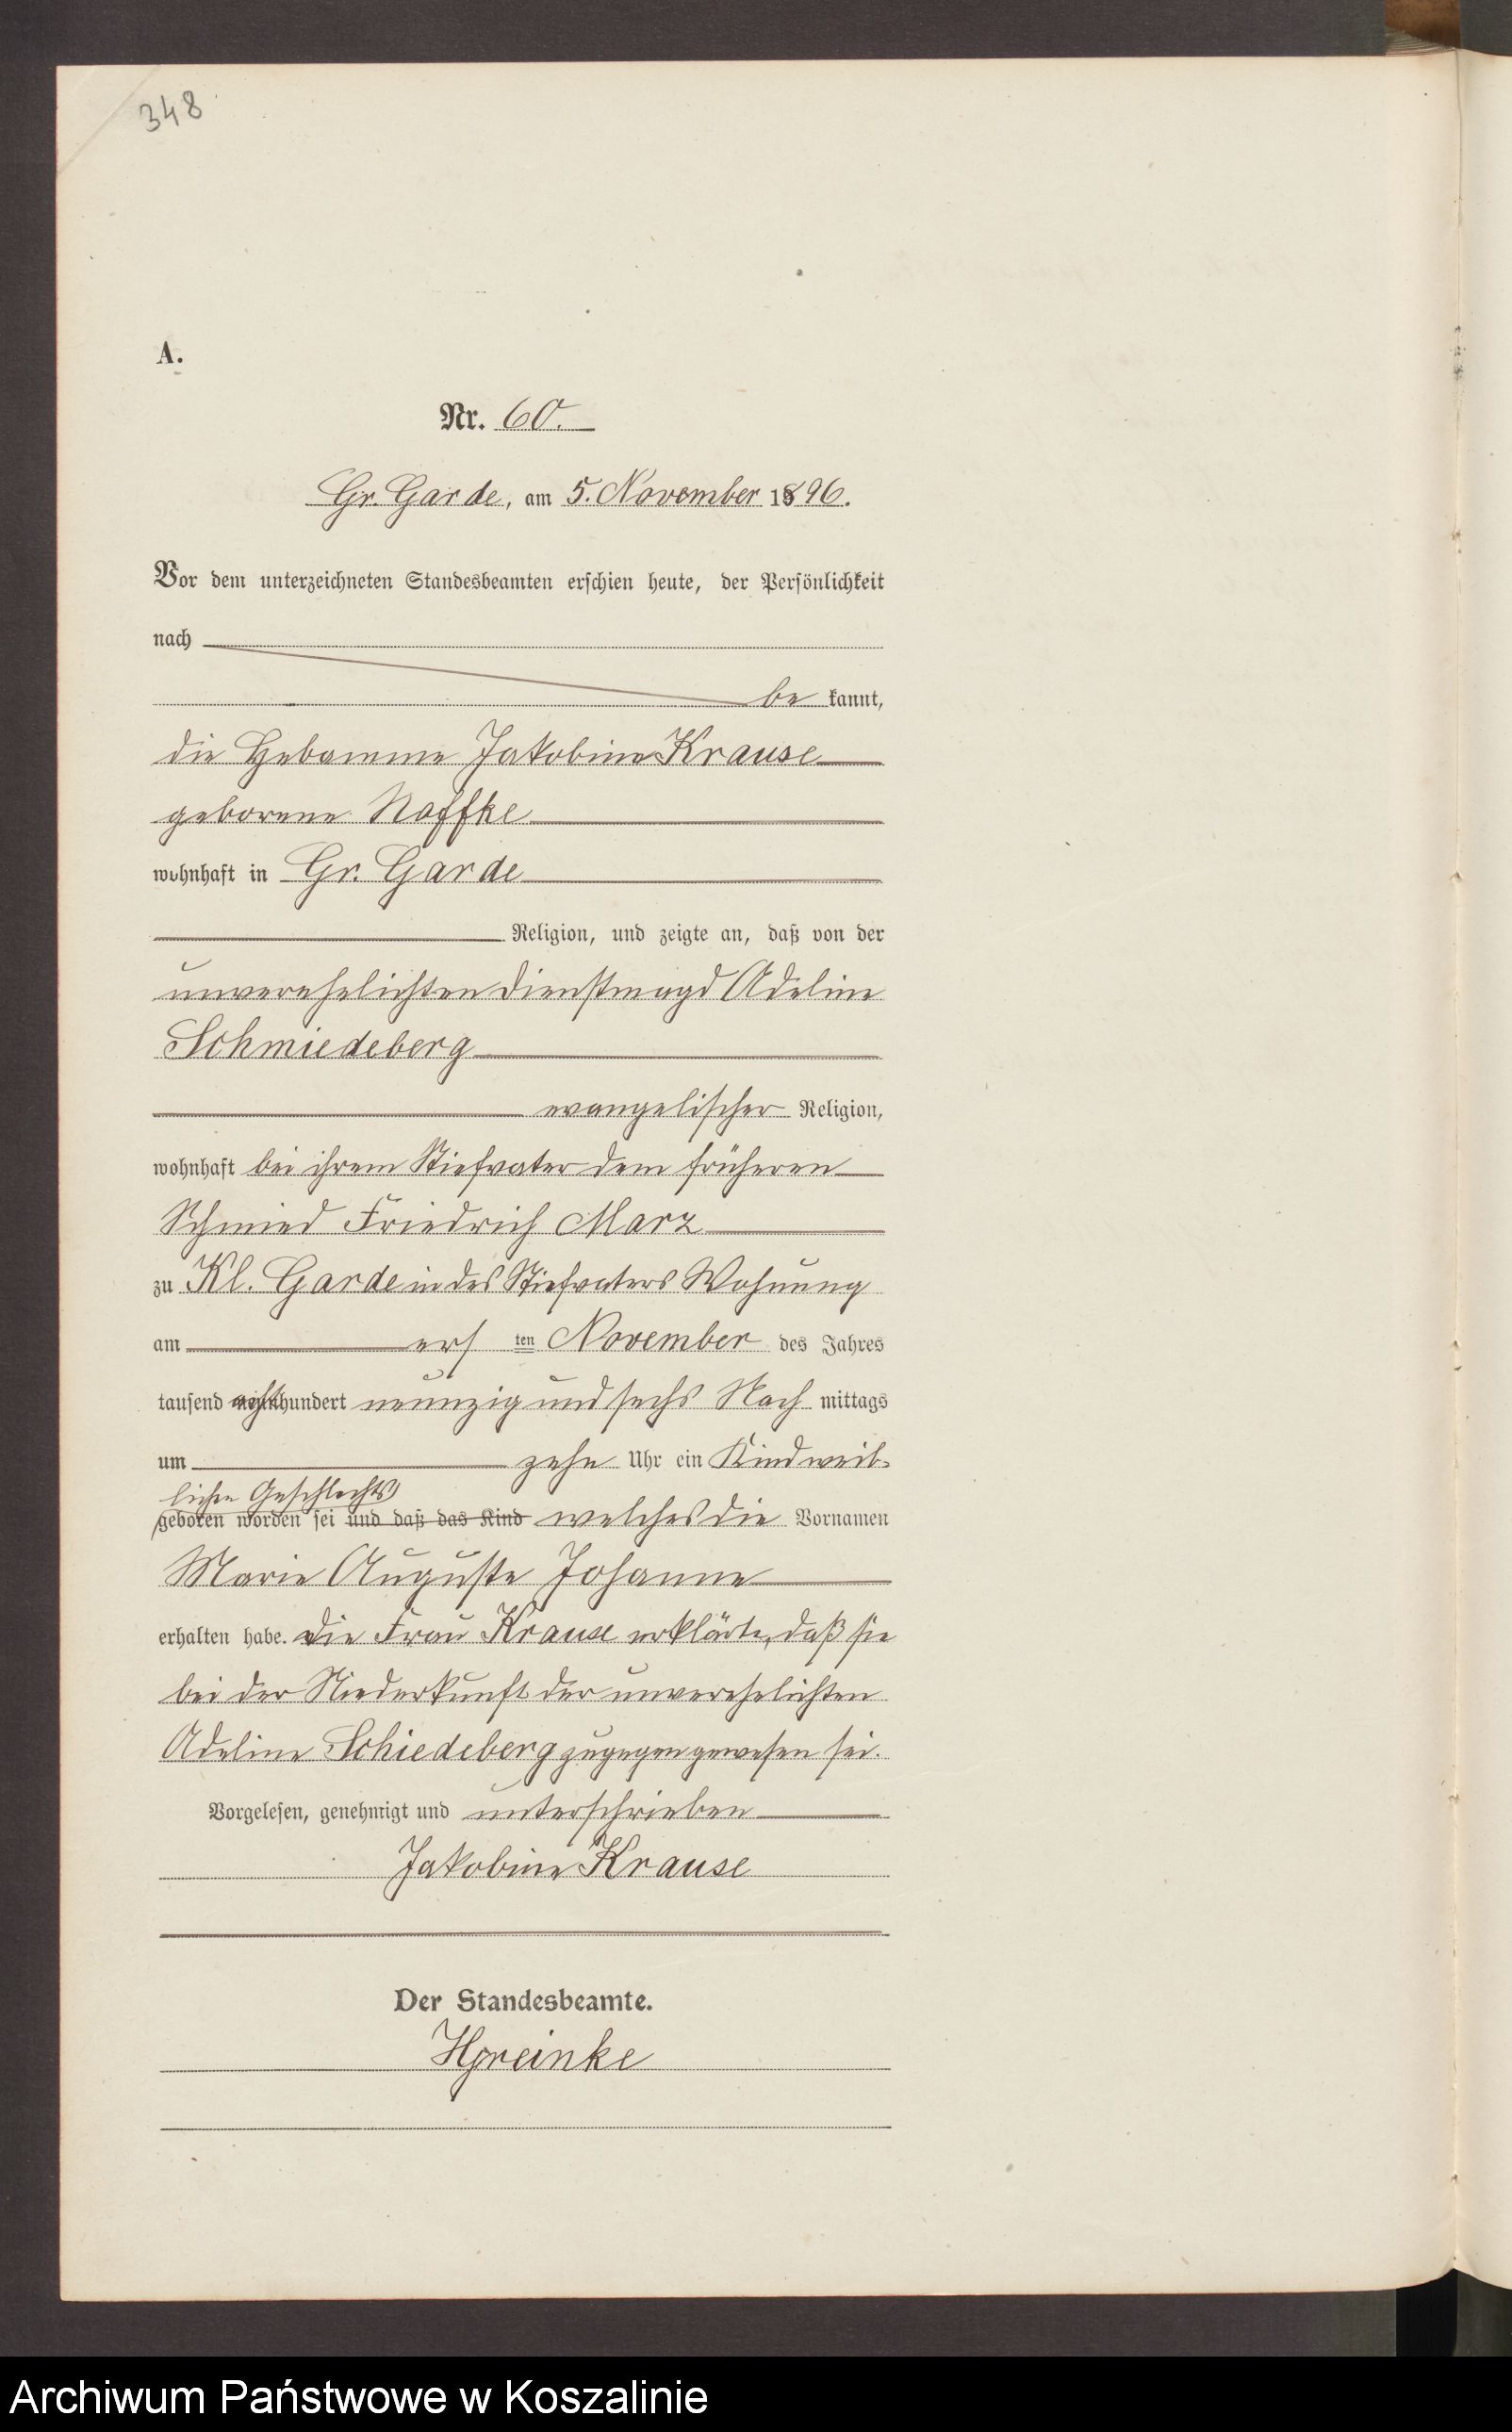 348
A.
Nr. 60.
Gr. Garde, am 5. November 1896.
Vor dem unterzeichneten Standesbeamten erschien heute, der Persönlichkeit
nach
be kannt,
die Hebamme Jakobine Krause
geborene Noffke
wohnhaft in Gr. Garde
Religion, und zeigte an, daß von der
unverehelichten Dienstmagd Adeline
Schmiedeberg
evangelischer Religion,
wohnhaft bei ihrem Stiefvater dem früheren
Schmied Friedrich Marz
zu Kl. Garde in des Stiefvaters Wohnung
am ers ten November des Jahres
tausend achthundert neunzig und sechs Nach mittags
um zehn Uhr ein Kind weib-
lichen Geschlechts
geboren worden sei und daß das Kind welches die Vornamen
Marie Auguste Johanne
erhalten habe. Die Frau Krause erklärte, daß sie
bei der Niederkunft der unverehelichten
Adeline Schiedeberg zugegen gewesen sei.
Vorgelesen, genehmigt und unterschrieben
Jakobine Krause
Der Standesbeamte.
Archiwum Państwowe w Koszalinie